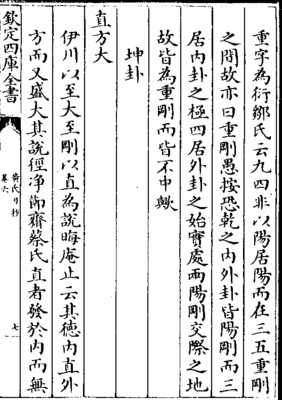 重字為衍鄒氏云九四非以陽居陽而在三五重剛
之間故亦曰重剛愚按恐乾之内外卦皆陽剛而三
居内卦之極四居外卦之始實處兩陽剛交際之地
故皆為重剛而皆不中歟
坤卦
直方大
伊川以至大至剛以直為説晦庵止云其徳内直外
方而又盛大其説徑淨節齋蔡氏直者發於内而無
欽定四庫全書
黄氏日抄
卷六
七